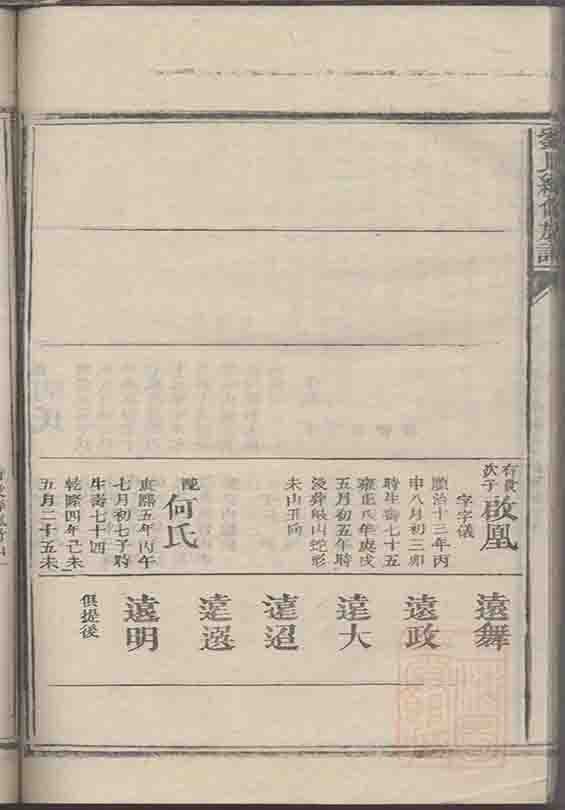 劉氏續修族譜
有貴
次子
啟鳳
字字儀
順治十三年丙
申八月初三卯
時生壽七十五
雍正八年庚戌
五月初五午時
歿舜峨山蛇形
未山丑向
配
何氏
康熙五年丙午
七月初七子時
生壽七十四
乾隆四年己未
五月二十五未
遠舞
遠政
遠大
遠迢
遠選
遠明
俱提後